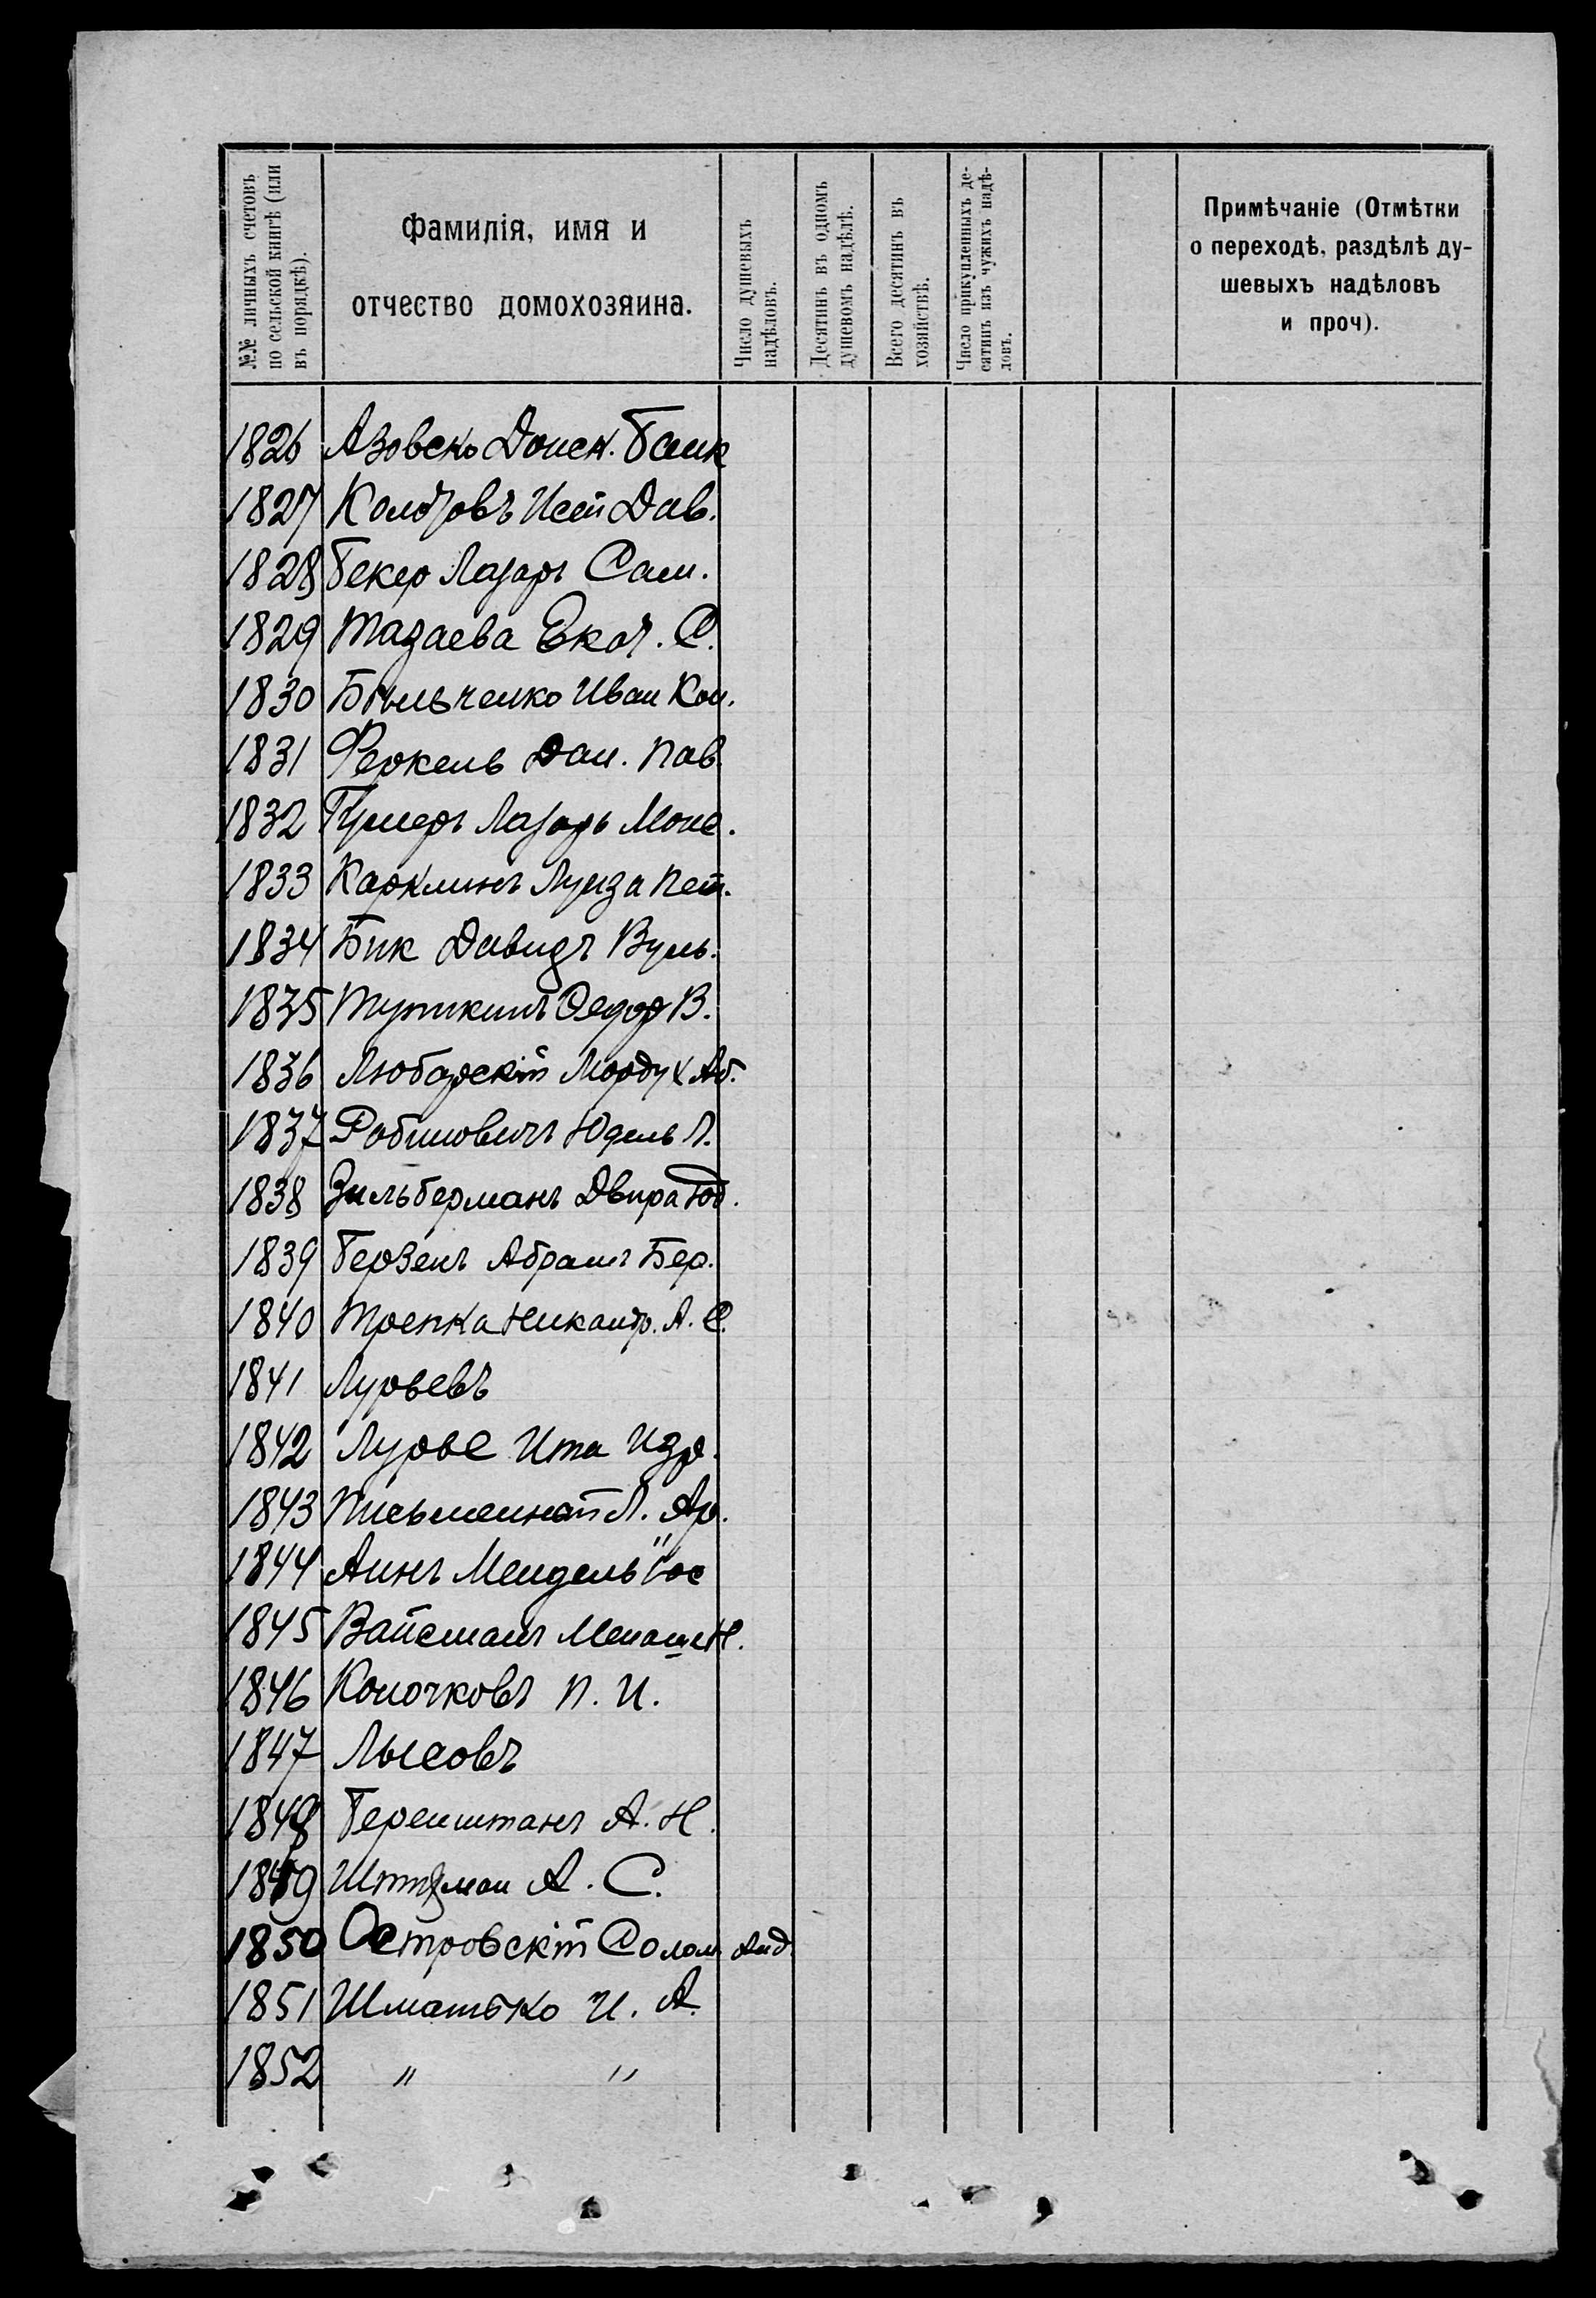 №№ личныхъ счетовъ
по сельской книгѣ (или
въ порядкѣ).
Фамилія, имя и
отчество домохозяина.
Число душевыхъ
надѣловъ.
Десятинъ въ одномъ
душевомъ надѣлѣ.
Всего десятинъ въ
хозяйствѣ.
Число прикупленныхъ де-
сятинъ изъ чужихъ надѣ-
ловъ.
Примѣчаніе (Отмѣтки
о переходѣ, раздѣлѣ ду-
шевыхъ надѣловъ
и проч).
1826 Азовско Донск. Банк
1827 Дав.
1828 Бекер Лазарь Сам.
1829 Мазаева Екат. С.
1830 Бѣльченко Иван Кон.
1831 Феркель Дан. Пав.
1832 Лазарь Моис.
1833 Карклинъ Луиза Пет.
1834 Бик Давидъ Вуль.
1835 Федор В.
1836 Любарскій Мордух Аб.
1837 Рабиновичъ Юдель Л.
1838 Зильберманъ Двира Юд.
1839 Герзенъ Абрамъ Бер.
1840 Трепка Никандр. А. С.
1841 Лурьевъ
1842 Лурье Ита Изр.
1843 Письменный Л. Ар.
1844 Аинъ Мендель Іос
1845 Вайсманъ Менаше Н.
1846 Коночковъ П. И.
1847 Лысовъ
1848 Беренштанъ А. Н.
1849 А. С.
1850 Островскій Солом. Аид.
1851 Шматько И. А.
1852 " "